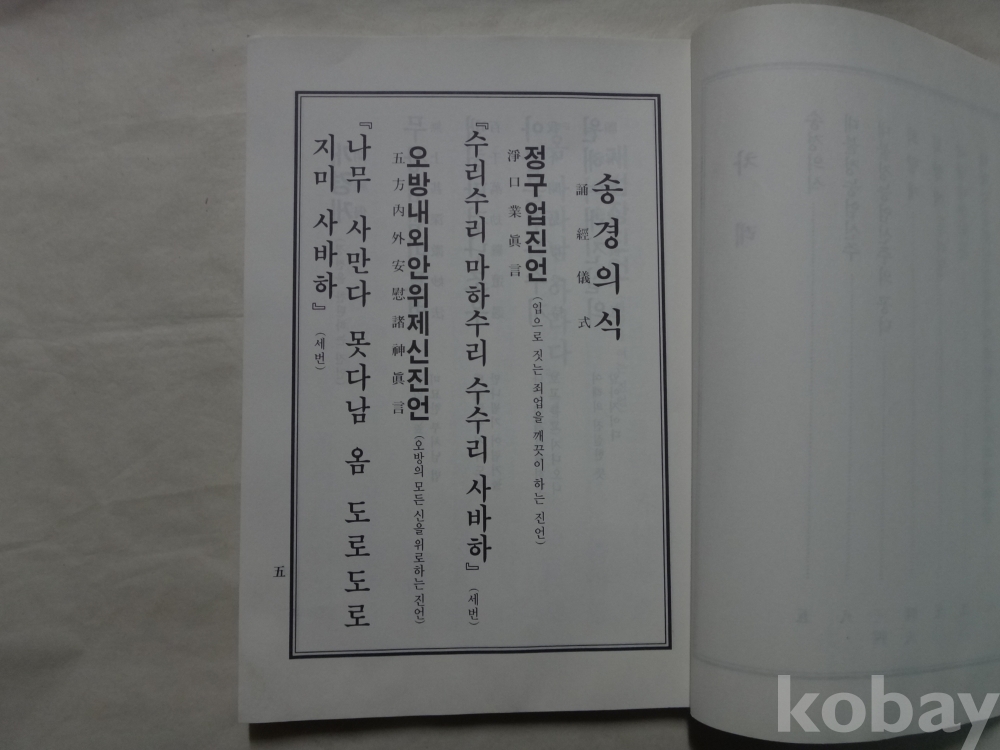 송경의식
誦經儀式
정구업진언 (입으로 짓는 죄업을 깨끗이 하는 진언)
淨口業眞言
『수리수리 마하수리 수수리 사바하』 (세번)
오방내외안위제신진언 (오방의 모든 신을 위로하는 진언)
五方內外安慰諸神眞言
『나무 사만다 못다남 옴 도로도로
지미 사바하』 (세번)
五
차례
kobay